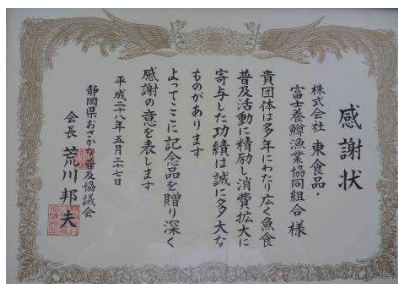 感謝状
株式会社 東食品・
富士養鱒漁業協同組合 様
貴団体は多年にわたり広く魚食
普及活動に精励し消費拡大に
寄与した功績は誠に多大な
ものがあります
よってここに記念品を贈り深く
感謝の意を表します
平成二十八年五月二十七日
静岡県おさかな普及協議会
会長 荒川邦夫